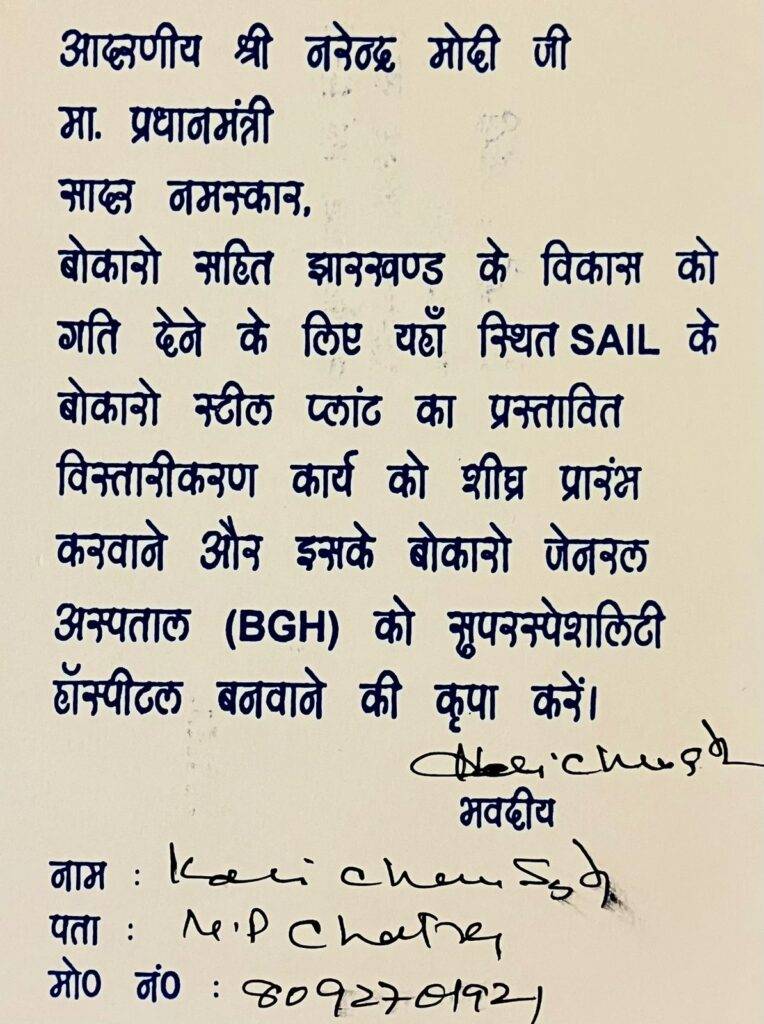 आदरणीय श्री नरेन्द्र मोदी जी
मा. प्रधानमंत्री
सादर नमस्कार,
बोकारो सहित झारखण्ड के विकास को
गति देने के लिए यहाँ स्थित SAIL के
बोकारो स्टील प्लांट का प्रस्तावित
विस्तारीकरण कार्य को शीघ्र प्रारंभ
करवाने और इसके बोकारो जेनरल
अस्पताल (BGH) को सुपरस्पेशलिटी
हॉस्पीटल बनवाने की कृपा करें।
भवदीय
नाम : Kali Charan Singh
पता : M.P Chatra
मो० नं० : 8092701921